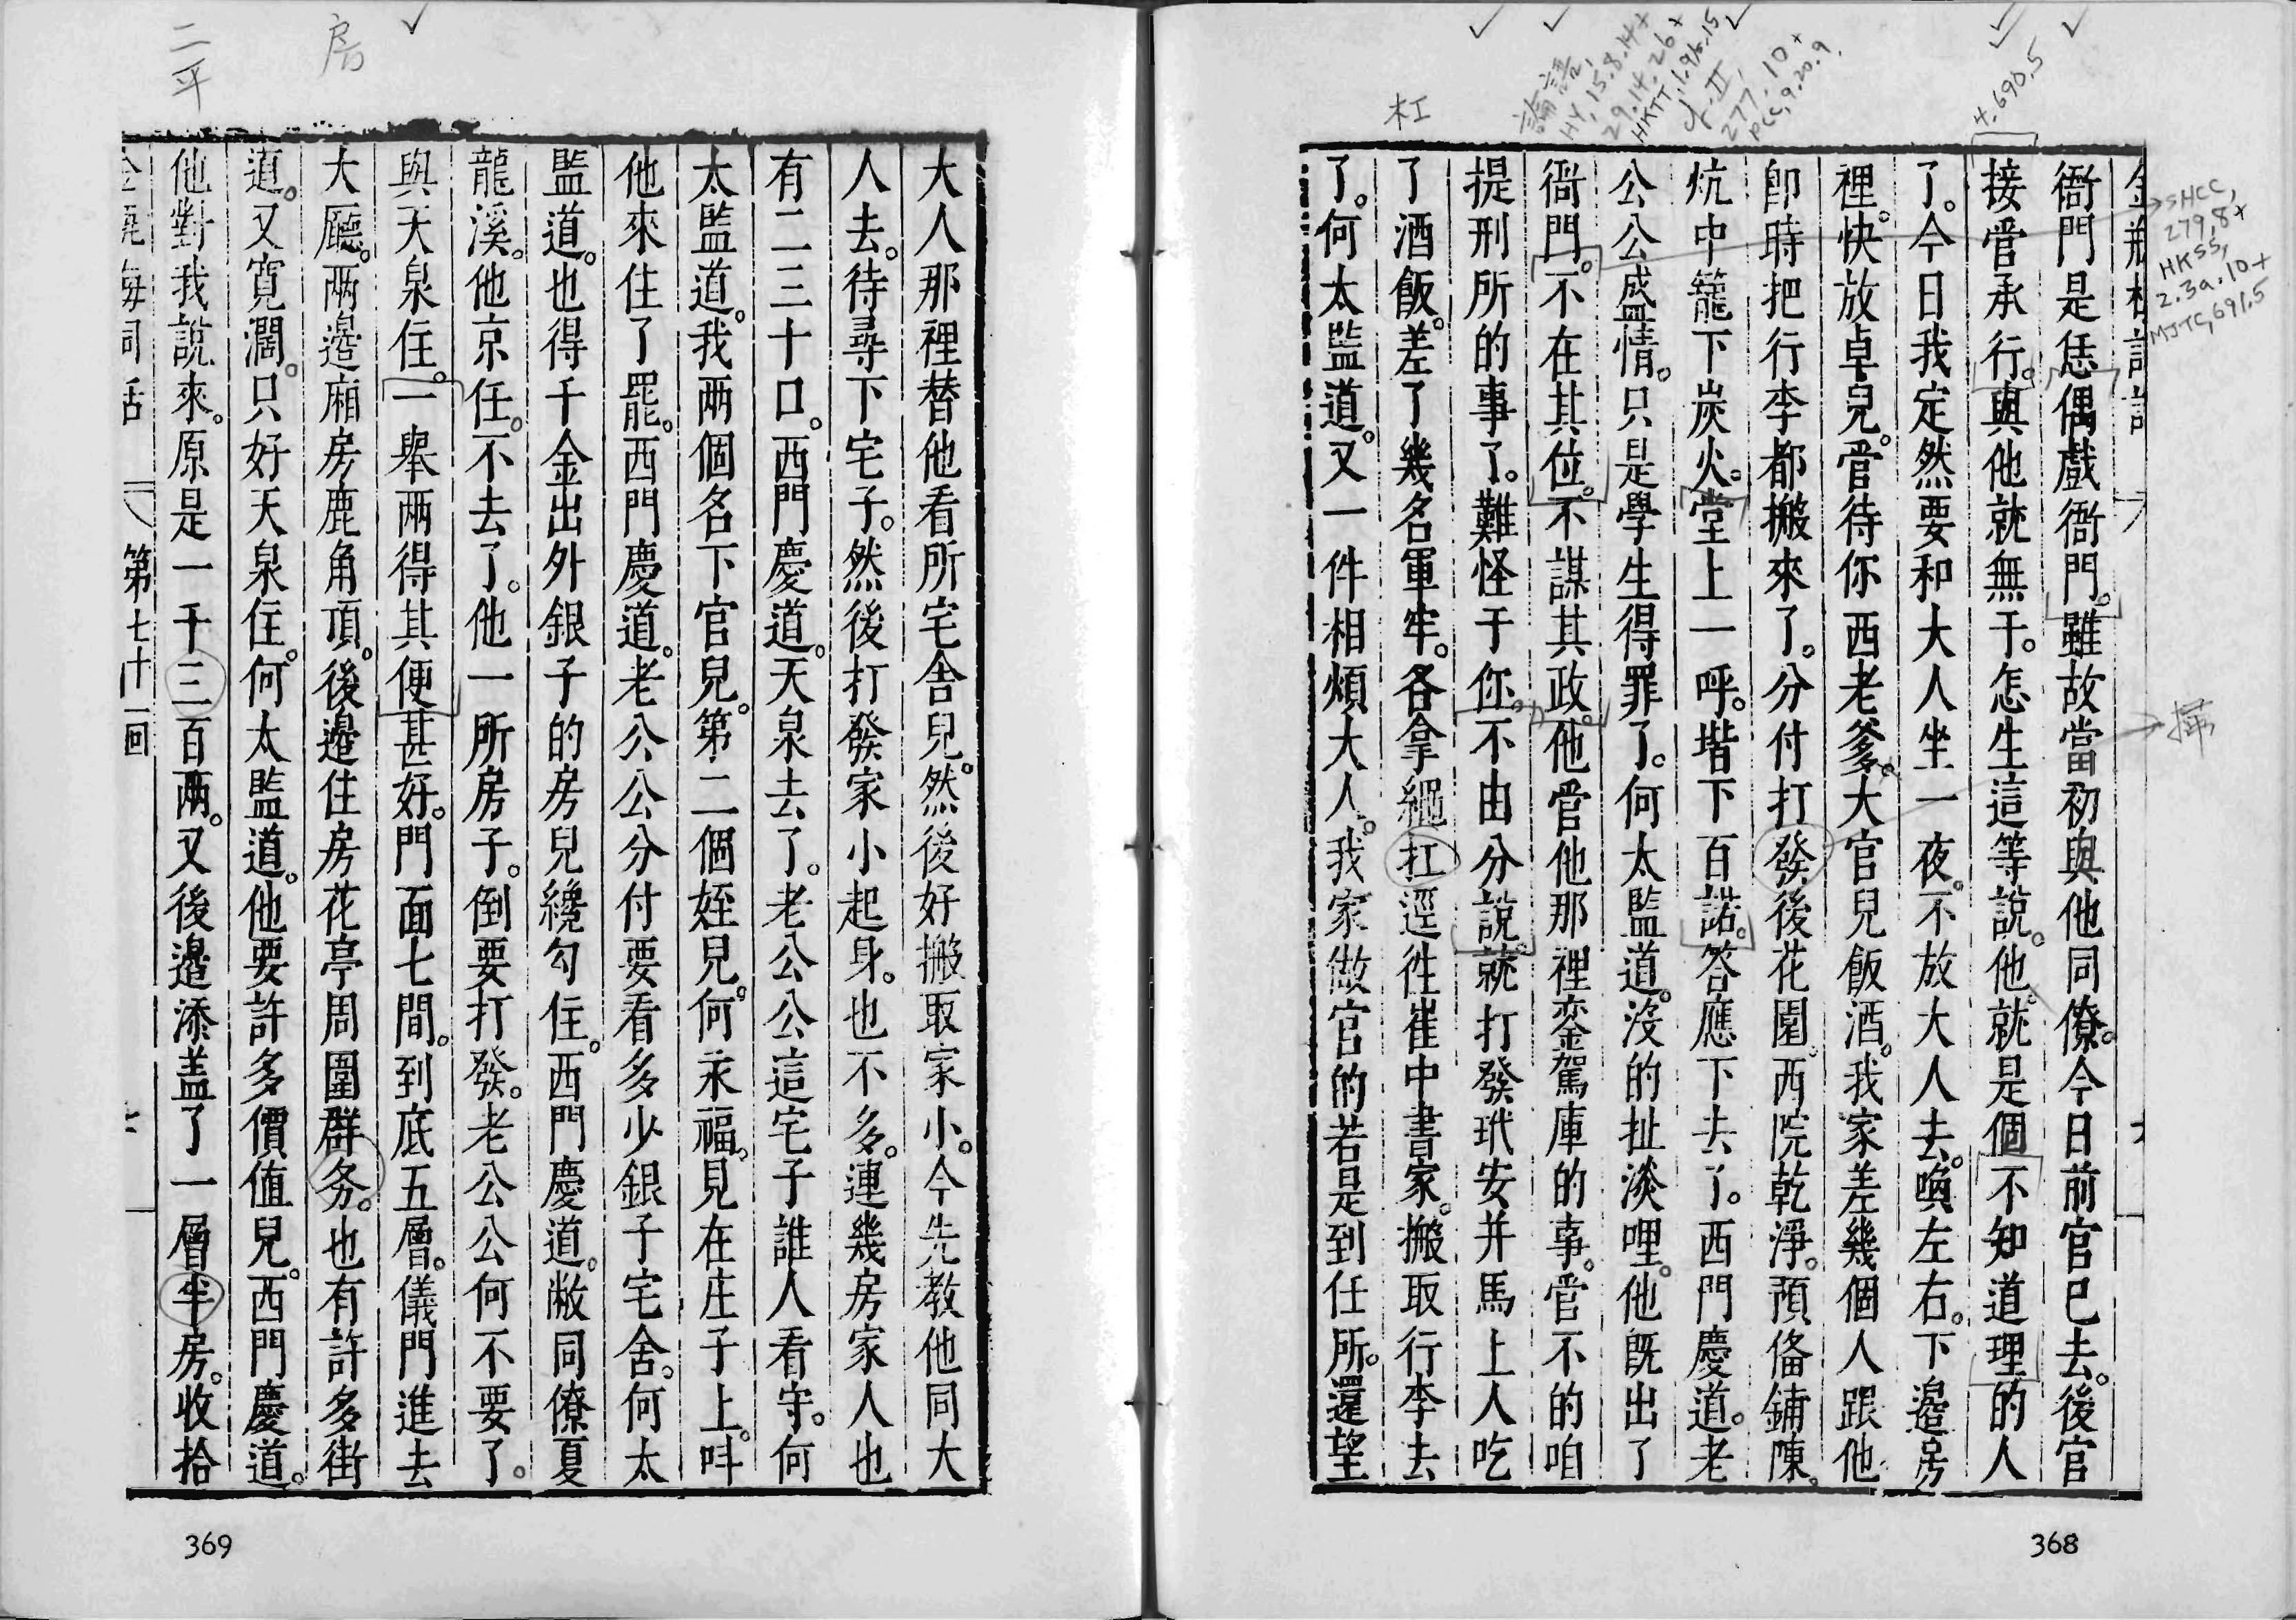 衙門是恁偶戲衙門。雖故當初與他同僚。今日前官已去。後官
接管承行。與他就無干。怎生這等說。他就是個不知道理的人
了。今日我定然要和大人坐一夜。不放大人去。喚左右。下邊房
裡。快放卓兒。管待你西老爹。大官兒飯酒。我家差幾個人跟他
卽時把行李都搬來了。分付打發後花園西院乾淨。預俻鋪陳。
炕中籠下炭火。堂上一呼。堦下百諾。答應下去了。西門慶道。老
公公盛情。只是學生得罪了。何太監道。沒的扯淡哩。他旣出了
衙門。不在其位。不謀其政。他管他那裡鑾駕庫的事。管不的咱
提刑所的事了。難怪于你。不由分說。就打發玳安并馬上人吃
了酒飯。差了幾名軍牢。各拿繩扛逕徃崔中書家。搬取行李去
了。何太監道。又一件相煩大人。我家做官的若是到任所。還望
大人那裡替他看所宅舍兒。然後好搬取家小。今先教他同大
人去。待尋下宅子。然後打發家小起身。也不多。連幾房家人也
有二三十口。西門慶道。天泉去了。老公公這宅子誰人看守。何
太監道。我兩個名下官兒。第二個姪兒。何永福。見在庄子上。呌
他來住了罷。西門慶道。老公公分付要看多少銀子宅舍。何太
監道。也得千金出外銀子的房兒纔勾住。西門慶道。敝同僚夏
龍溪。他京任。不去了。他一所房子。倒要打發。老公公何不要了。
與天泉住。一舉兩得其便甚好。門面七間。到底五層。儀門進去
大廳。兩邊廂房鹿角頂。後邊住房花亭周圍群务。也有許多街
道。又寬濶。只好天泉住。何太監道。他要許多價值兒。西門慶道。
他對我說來。原是一千三百兩。又後邊添盖了一層平房。收拾
第七十一回
368
369
二平
房
杠
論語,
HY, 15.8.14+
29.14.26+
HKTT, 1.9/6.15
277.10+
PCC, 9.20.9
4.690.5
SHCC,
279.8+
HKSS,
2.3a.10+
MJTC, 691.5